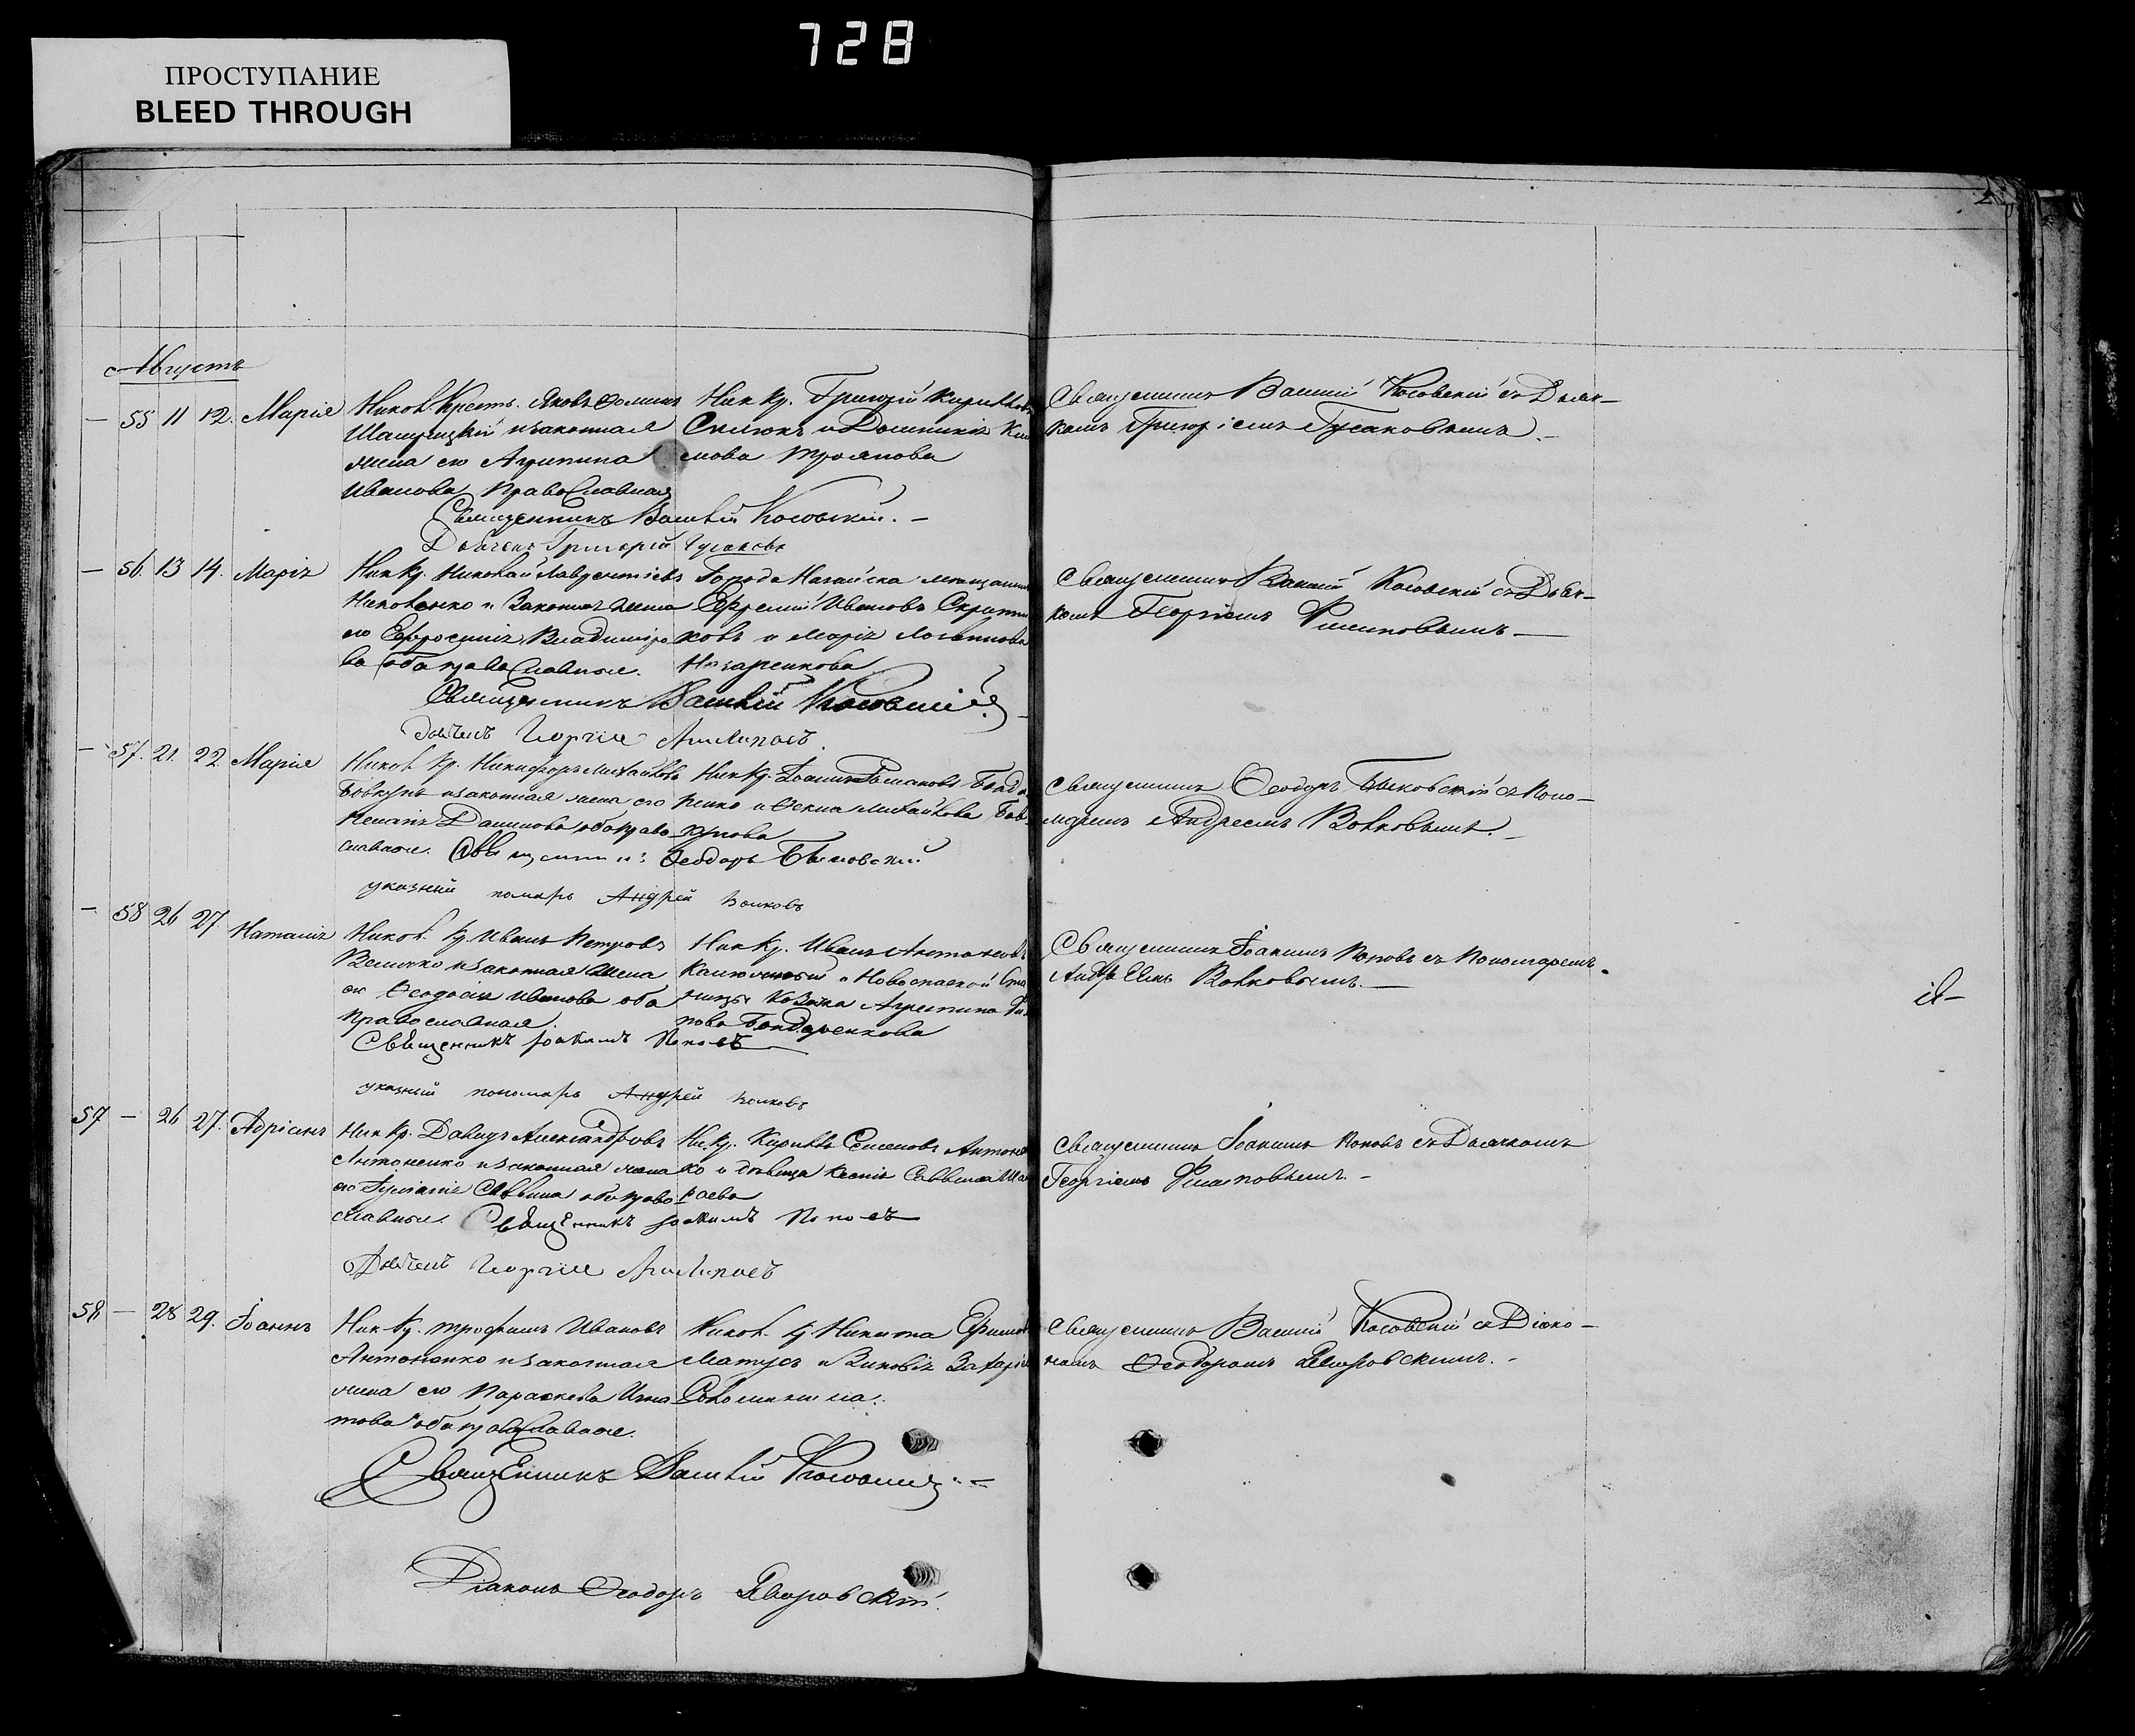 728
ПРОСТУПАНИЕ
BLEED THROUGH
Августъ
55 11 12. Марія
Никол. Крест. Яковъ
и законная
жена его Агрипина
Иванова Православная
Ник Кр. Григорій Кирилловъ
Троянова
Священникъ Василій Косовскій съ Дьяч-
комъ Григоріемъ Гусаковымъ.
Священникъ Василій Косовскій.
Дьячекъ Григорій Гусаковъ
56. 13 14. Марія
Ник Кр. Николай Лаврентіевъ
Николенко и Законная жена
его Евфросинія Владиміро
ва оба православные.
Города Нагайска мещанинъ
Ефремій Ивановъ
ковъ и Марія Логвинова
Назаренкова
Священникъ Василій Косовскій съ Дьяч-
комъ Георгіемъ Филиповымъ
Священникъ Василій Косовскій
Дьячекъ Георгій Филиповъ
57. 21. 22. Марія
Никол Кр. Никифоръ Михайловъ
Бовкунъ и законная жена его
Данилова оба право
славные.
Ник Кр. Іоаннъ Романовъ
и Фекла Михайлова Бов-
кунова
Священникъ Феодоръ Быковскій съ Поно-
маремъ Андреемъ Волковымъ.
Священникъ Феодоръ Быковскій
указный помарь Андрей Волковъ
58 26 27. Наталія
Никол. Кр. Иванъ Петровъ
Величко и законная жена
его Феодосія Иванова оба
Православная.
Ник Кр. Иванъ Антоновъ
и Новоспаской Ста
ницы Козачка Агрепина
пова Бондаренкова
Священникъ Іоакимъ Поповъ съ Пономаремъ
Андреемъ Волковымъ.
Священникъ Іоакимъ Поповъ
указный пономарь Андрей Волковъ
57 — 26 27. Адріанъ
Ник Кр. Давидъ Александровъ
Антоненко и законная жена
его Іуліанія Саввина оба право
славные.
Ник Кр. Кириллъ Семеновъ Антонен
ко и девица Ксенія Саввина
Священникъ Іоакимъ Поповъ съ Дьячкомъ
Георгіемъ Филиповымъ.
Священникъ Іоакимъ Поповъ
Дьячекъ Георгій Филиповъ
58 — 28 29. Іоаннъ
Ник Кр. Трофимъ Ивановъ
Антоненко и законная
жена его Параскева Игна
това оба православные.
Никол. Кр Никита Ефимов
Матусъ и Зиновія Захаріи
Священникъ Василій Косовскій съ Діако-
номъ Феодоромъ Яворовскимъ.
Священникъ Василій Косовскій
Діаконъ Феодоръ Яворовскій.